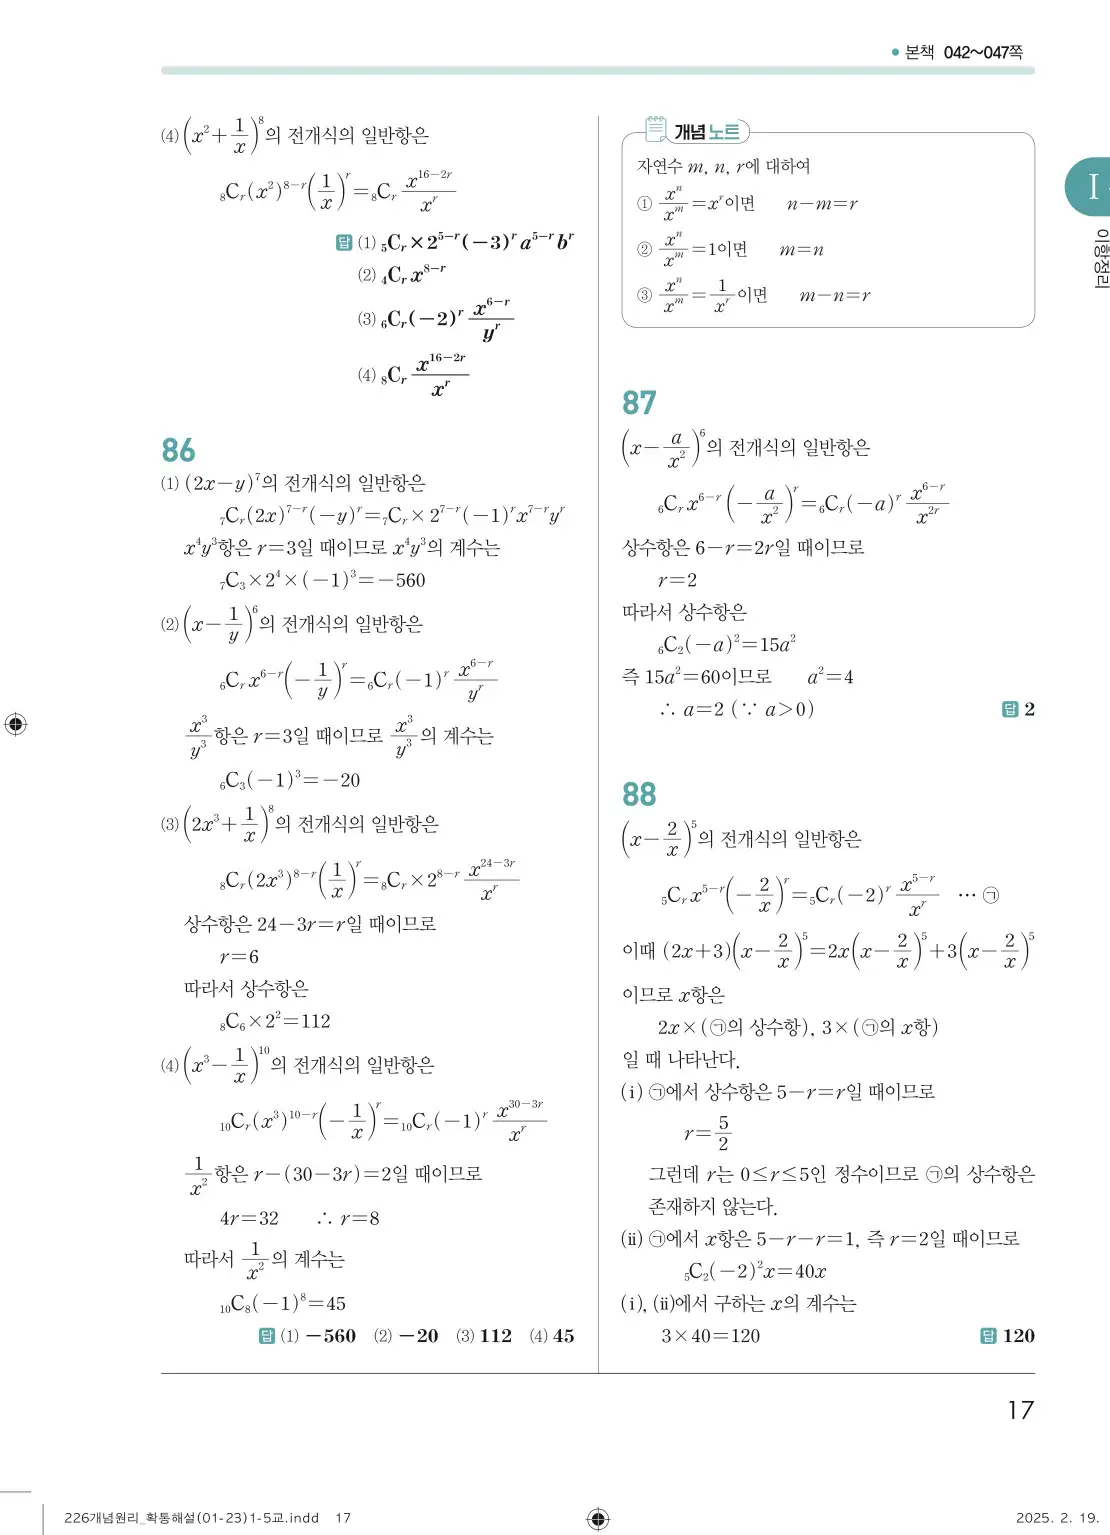 ● 본책 042~047쪽
⑷ (x²+1/x)⁸의 전개식의 일반항은
₈Cᵣ(x²)⁸⁻ʳ(1/x)ʳ=₈Cᵣ x¹⁶⁻²ʳ/xʳ
답 ⑴ ₅Cᵣ×2⁵⁻ʳ(−3)ʳa⁵⁻ʳbʳ
⑵ ₄Cᵣx⁸⁻ʳ
⑶ ₆Cᵣ(−2)ʳ x⁶⁻ʳ/yʳ
⑷ ₈Cᵣ x¹⁶⁻²ʳ/xʳ
86
⑴ (2x−y)⁷의 전개식의 일반항은
₇Cᵣ(2x)⁷⁻ʳ(−y)ʳ=₇Cᵣ×2⁷⁻ʳ(−1)ʳx⁷⁻ʳyʳ
x⁴y³항은 r=3일 때이므로 x⁴y³의 계수는
₇C₃×2⁴×(−1)³=−560
⑵ (x−1/y)⁶의 전개식의 일반항은
₆Cᵣx⁶⁻ʳ(−1/y)ʳ=₆Cᵣ(−1)ʳ x⁶⁻ʳ/yʳ
x³/y³항은 r=3일 때이므로 x³/y³의 계수는
₆C₃(−1)³=−20
⑶ (2x³+1/x)⁸의 전개식의 일반항은
₈Cᵣ(2x³)⁸⁻ʳ(1/x)ʳ=₈Cᵣ×2⁸⁻ʳ x²⁴⁻³ʳ/xʳ
상수항은 24−3r=r일 때이므로
r=6
따라서 상수항은
₈C₆×2²=112
⑷ (x³−1/x)¹⁰의 전개식의 일반항은
₁₀Cᵣ(x³)¹⁰⁻ʳ(−1/x)ʳ=₁₀Cᵣ(−1)ʳ x³⁰⁻³ʳ/xʳ
1/x²항은 r−(30−3r)=2일 때이므로
4r=32 ∴ r=8
따라서 1/x²의 계수는
₁₀C₈(−1)⁸=45
답 ⑴ −560 ⑵ −20 ⑶ 112 ⑷ 45
개념 노트
자연수 m, n, r에 대하여
① xⁿ/xᵐ=xʳ이면 n−m=r
② xⁿ/xᵐ=1이면 m=n
③ xⁿ/xᵐ=1/xʳ이면 m−n=r
87
(x−a/x²)⁶의 전개식의 일반항은
₆Cᵣx⁶⁻ʳ(−a/x²)ʳ=₆Cᵣ(−a)ʳ x⁶⁻ʳ/x²ʳ
상수항은 6−r=2r일 때이므로
r=2
따라서 상수항은
₆C₂(−a)²=15a²
즉 15a²=60이므로 a²=4
∴ a=2 (∵ a>0)
답 2
88
(x−2/x)⁵의 전개식의 일반항은
₅Cᵣx⁵⁻ʳ(−2/x)ʳ=₅Cᵣ(−2)ʳ x⁵⁻ʳ/xʳ … ㉠
이때 (2x+3)(x−2/x)⁵=2x(x−2/x)⁵+3(x−2/x)⁵
이므로 x항은
2x×(㉠의 상수항), 3×(㉠의 x항)
일 때 나타난다.
(ⅰ) ㉠에서 상수항은 5−r=r일 때이므로
r=5/2
그런데 r는 0≤r≤5인 정수이므로 ㉠의 상수항은
존재하지 않는다.
(ⅱ) ㉠에서 x항은 5−r−r=1, 즉 r=2일 때이므로
₅C₂(−2)²x=40x
(ⅰ), (ⅱ)에서 구하는 x의 계수는
3×40=120
답 120
Ⅰ
이항정리
17
226개념원리_확통해설(01-23)1-5교.indd 17
2025. 2. 19.